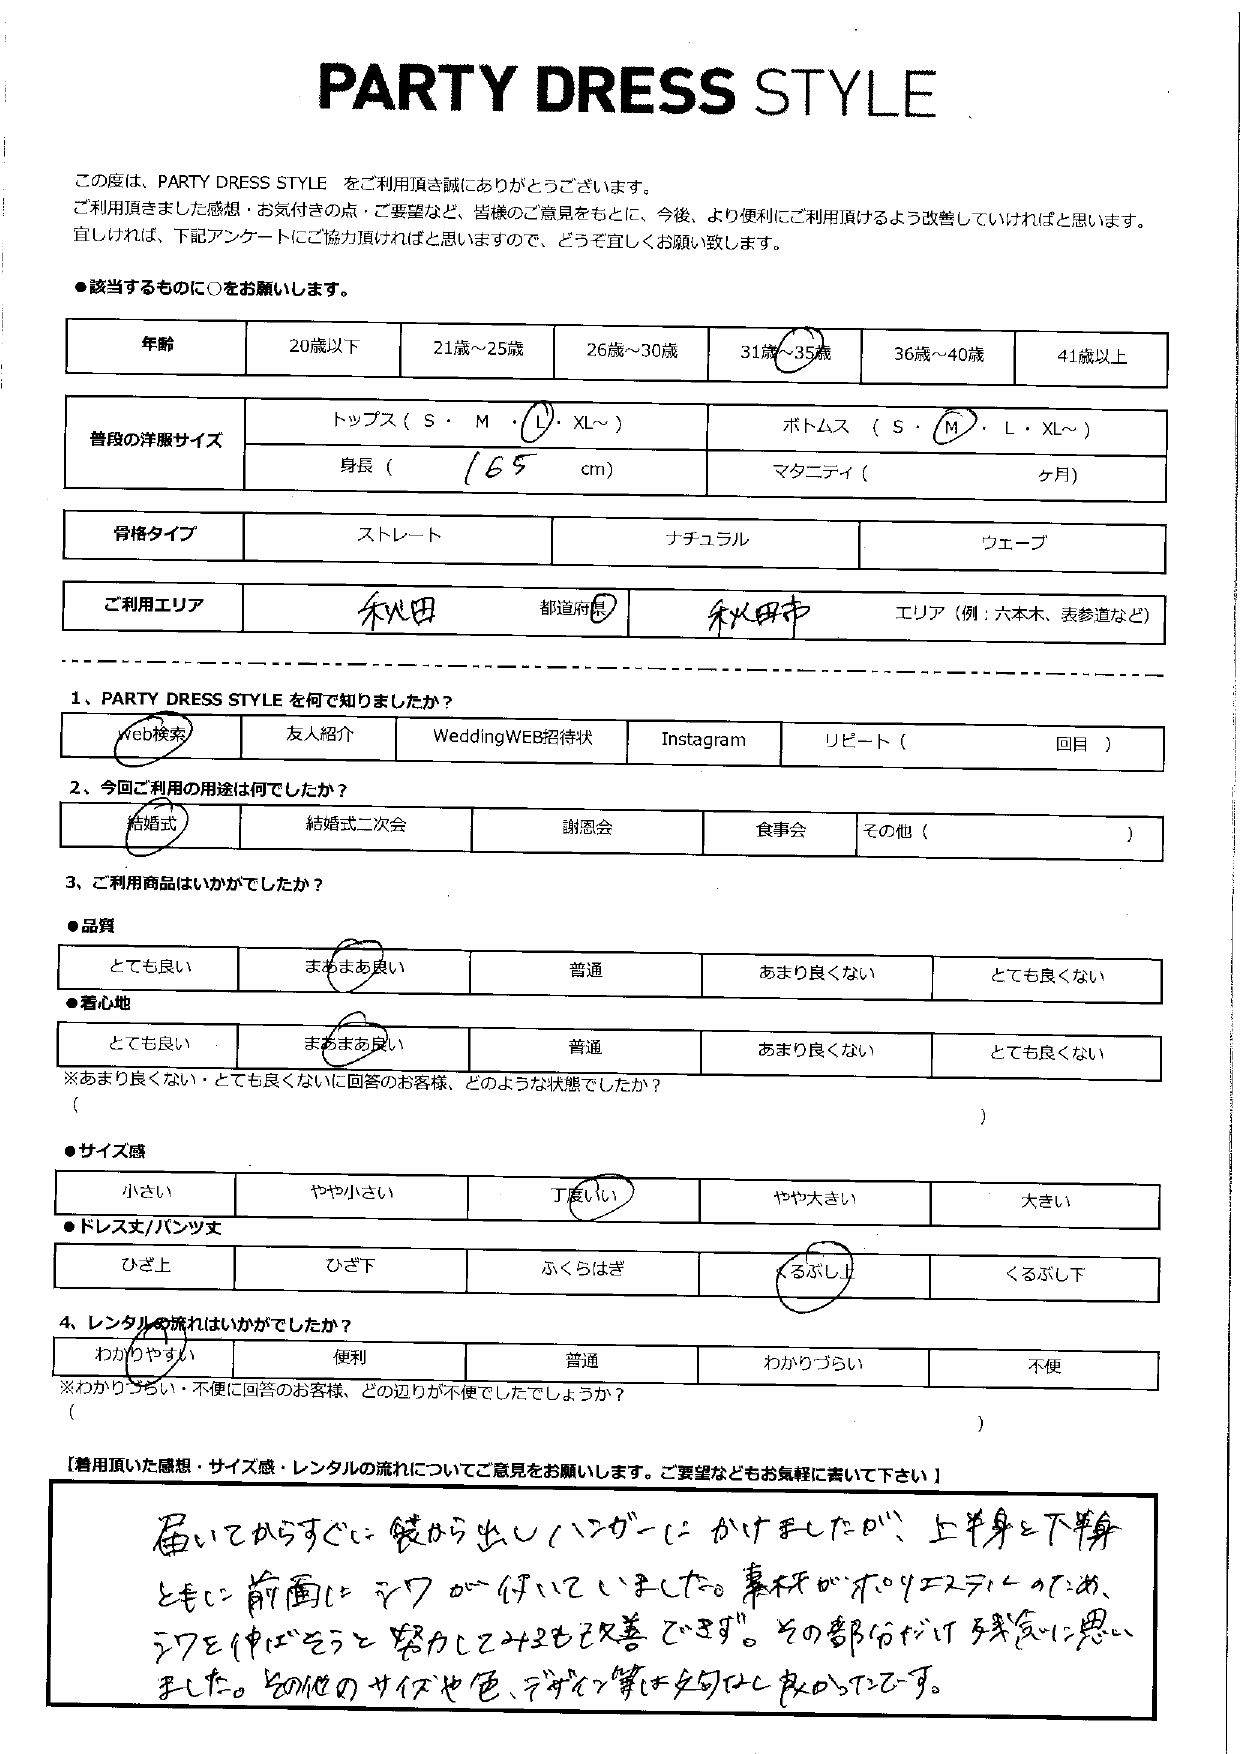 PARTY DRESS STYLE
この度は、PARTY DRESS STYLE をご利用頂き誠にありがとうございます。
ご利用頂きました感想・お気付きの点・ご要望など、皆様のご意見をもとに、今後、より便利にご利用頂けるよう改善していければと思います。
宜しければ、下記アンケートにご協力頂ければと思いますので、どうぞ宜しくお願い致します。
●該当するものに○をお願いします。
年齢 20歳以下 21歳～25歳 26歳～30歳 31歳～35歳 36歳～40歳 41歳以上
普段の洋服サイズ トップス ( S ・ M ・ L ・ XL～ ) ボトムス ( S ・ M ・ L ・ XL～ )
身長 ( 165 cm) マタニティ ( ヶ月)
骨格タイプ ストレート ナチュラル ウェーブ
ご利用エリア 秋田 都道府県 秋田市 エリア（例：六本木、表参道など）
1、PARTY DRESS STYLE を何で知りましたか？
web検索 友人紹介 WeddingWEB招待状 Instagram リピート ( 回目 )
2、今回ご利用の用途は何でしたか？
結婚式 結婚式二次会 謝恩会 食事会 その他 ( )
3、ご利用商品はいかがでしたか？
●品質
とても良い まあまあ良い 普通 あまり良くない とても良くない
●着心地
とても良い まあまあ良い 普通 あまり良くない とても良くない
※あまり良くない・とても良くないに回答のお客様、どのような状態でしたか？
( )
●サイズ感
小さい やや小さい 丁度いい やや大きい 大きい
●ドレス丈/パンツ丈
ひざ上 ひざ下 ふくらはぎ くるぶし上 くるぶし下
4、レンタルの流れはいかがでしたか？
わかりやすい 便利 普通 わかりづらい 不便
※わかりづらい・不便に回答のお客様、どの辺りが不便でしたでしょうか？
( )
【着用頂いた感想・サイズ感・レンタルの流れについてご意見をお願いします。ご要望などもお気軽に書いて下さい】
届いてからすぐに袋から出しハンガーにかけましたが、上半身と下半身
ともに前面にシワが付いていました。素材がポリエステルのため、
シワを伸ばそうと努力してみるも改善できず。その部分だけ残念に思い
ました。その他のサイズや色、デザイン等は文句なし良かったです。